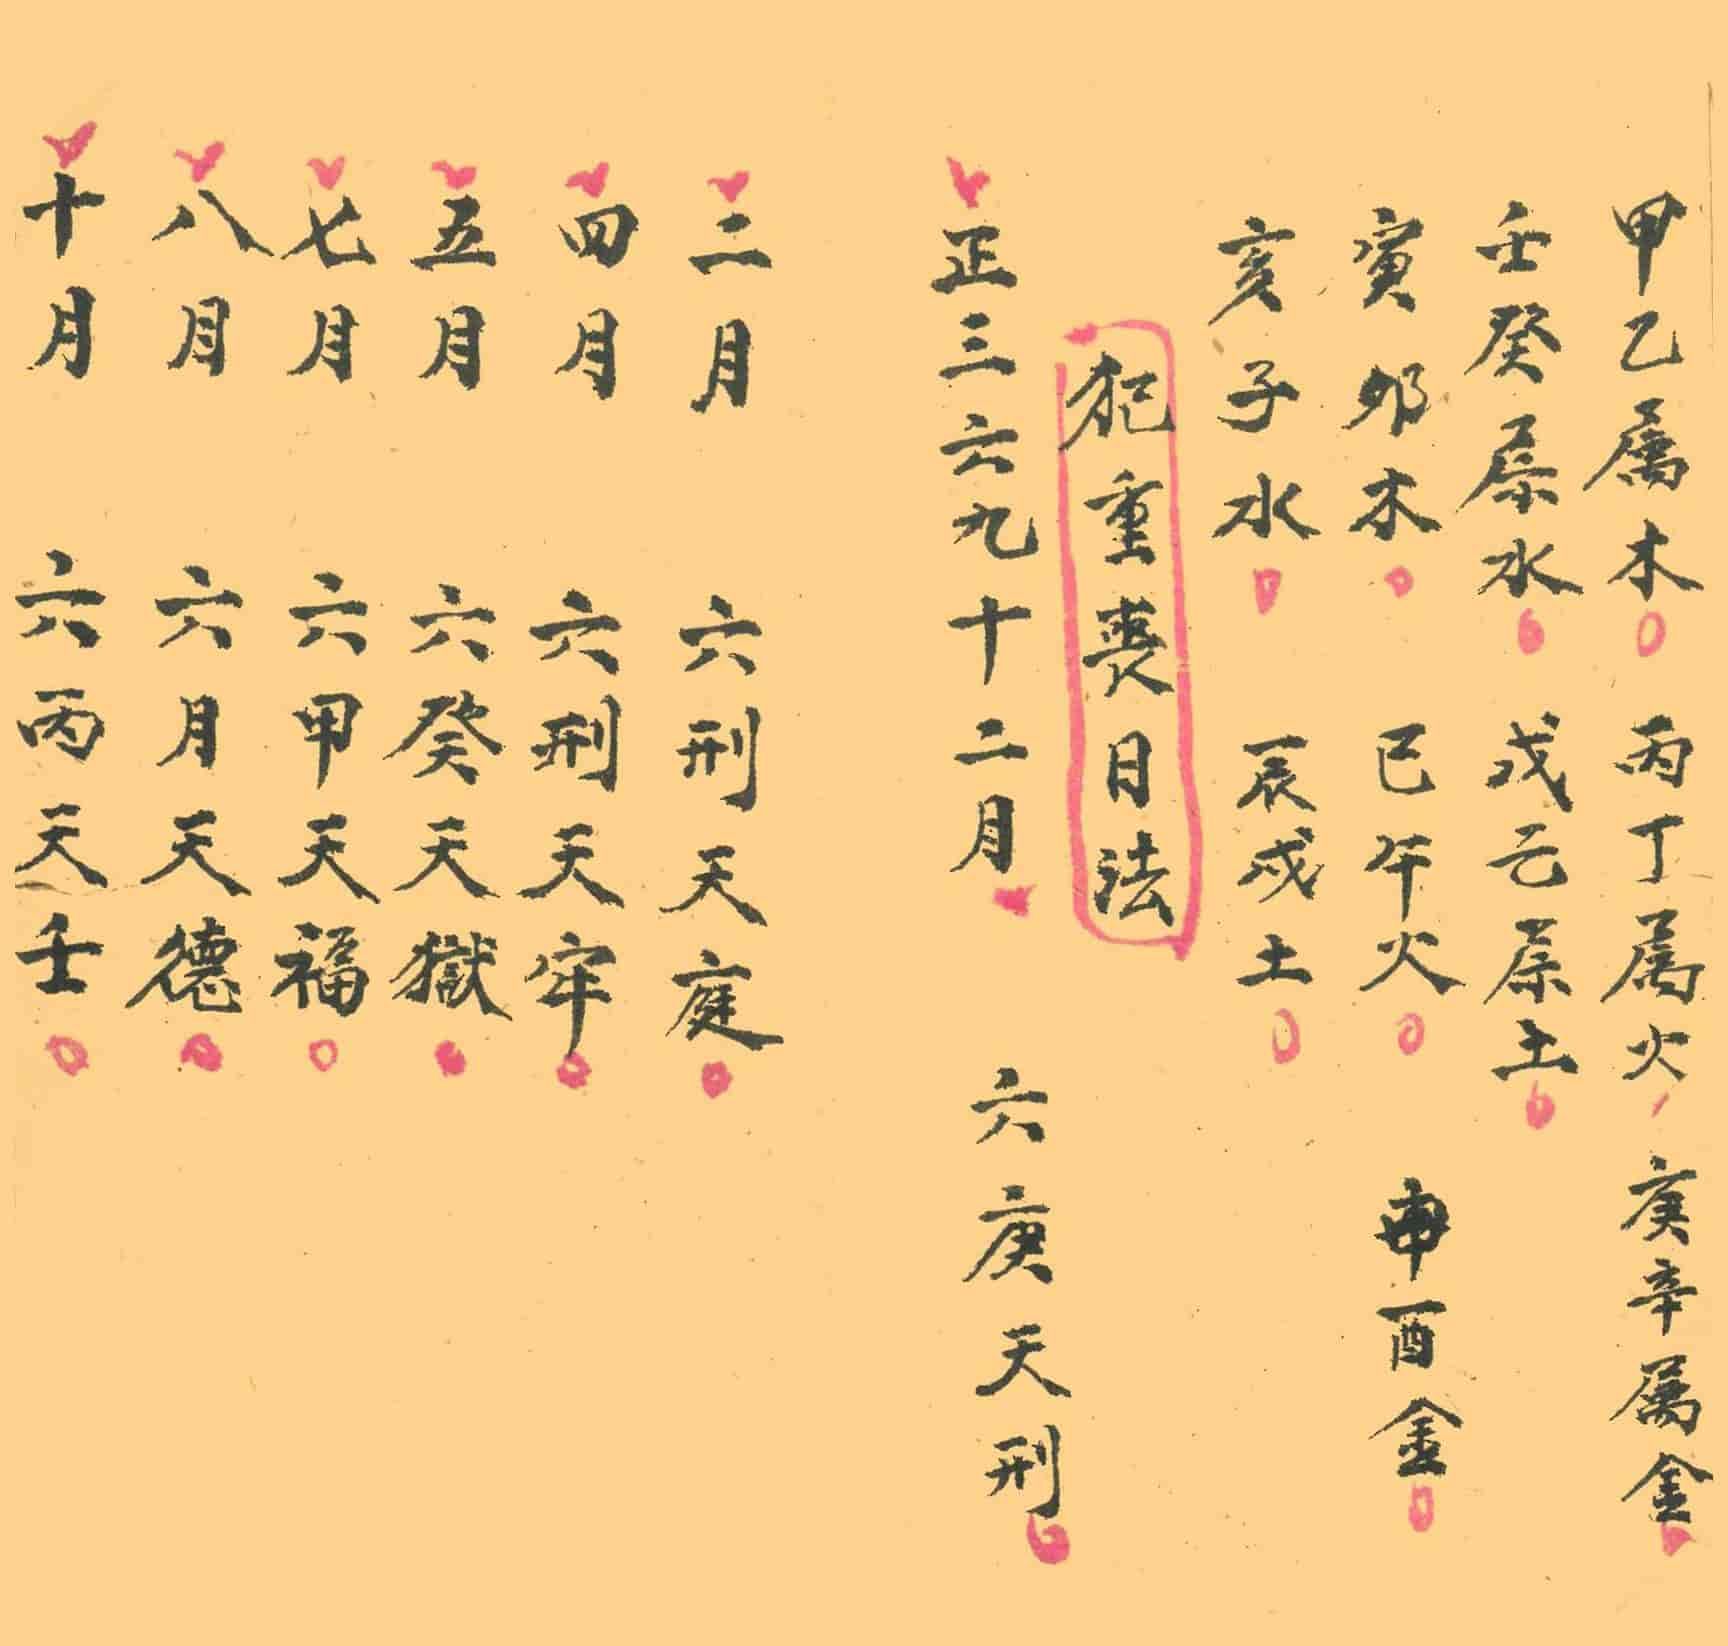 甲乙属木 丙丁属火 庚辛属金
壬癸属水 戊己属土
寅卯木 巳午火 申酉金
亥子水 辰戌土
犯重喪日法
正三六九十二月 六庚天刑
二月 六刑天庭
四月 六刑天牢
五月 六癸天獄
七月 六甲天福
八月 六月天德
十月 六丙天壬